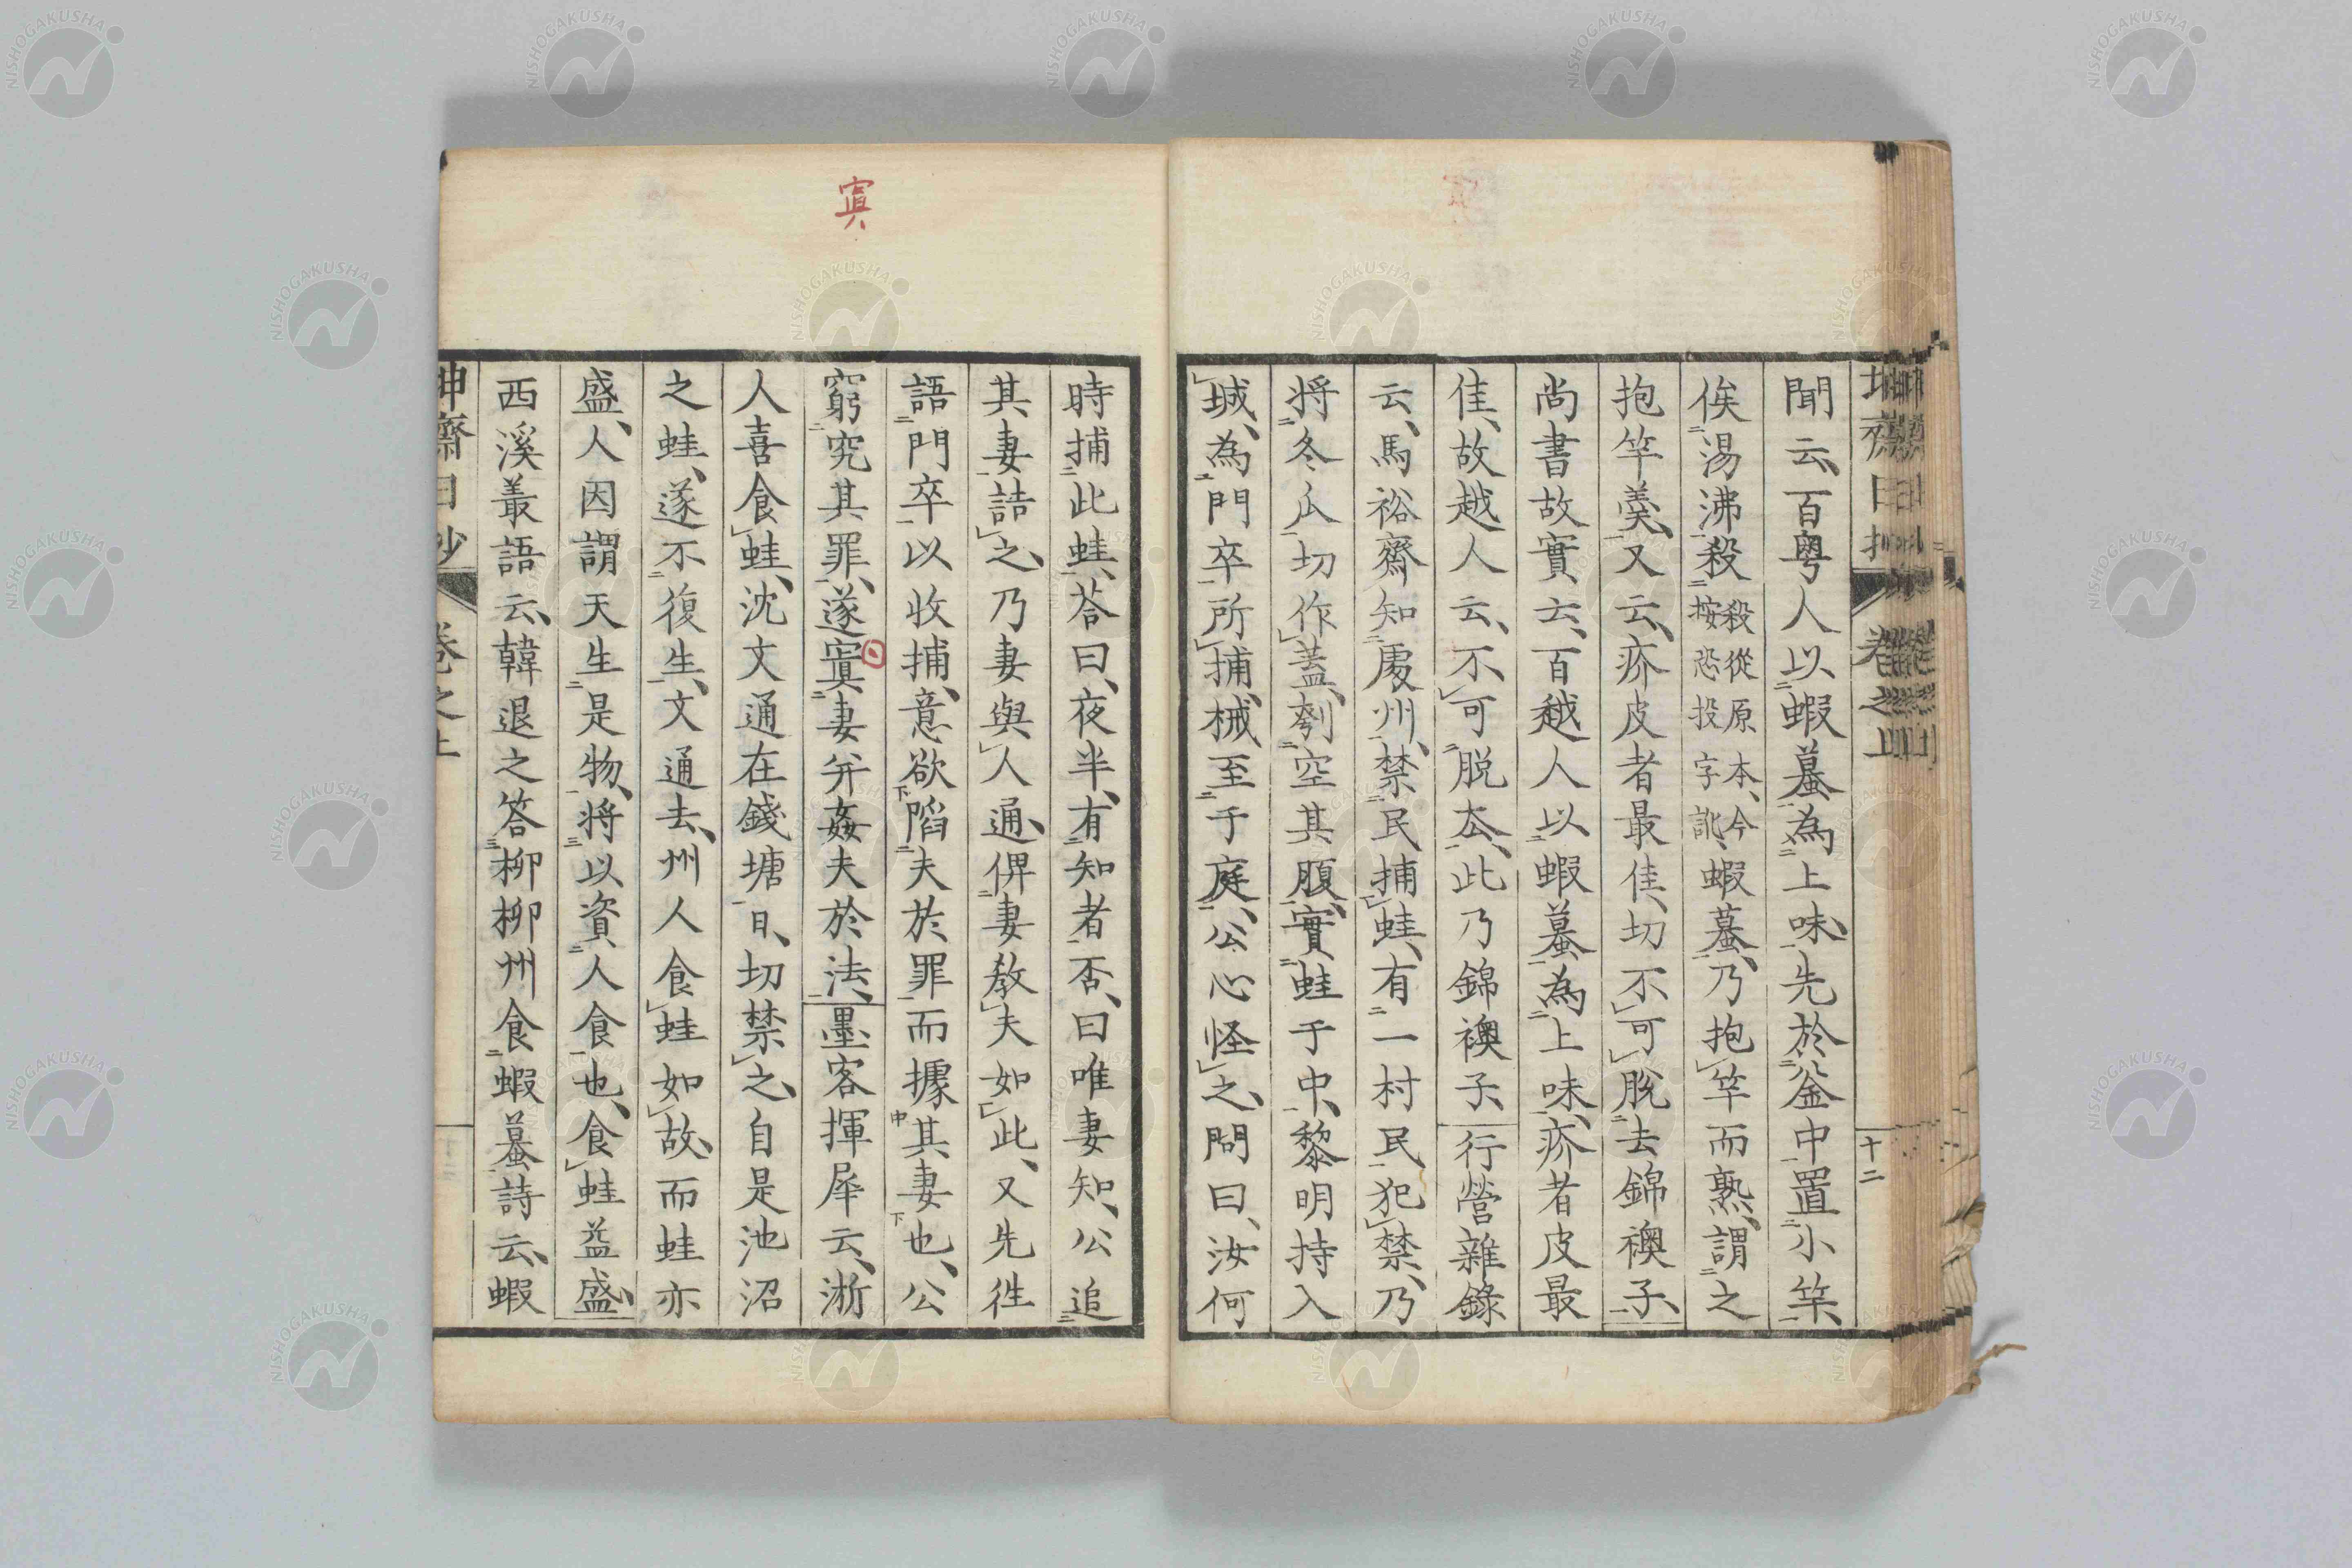 聞云、百粤人以蝦蟇為上味、先於釜中置小竿、
俟湯沸殺殺從原本、今按恐投字訛、蝦蟇、乃抱竿而熟、謂之
抱竿羹、又云、疥皮者最佳、切不可脱去錦襖子、
尚書故實云、百越人以蝦蟇為上味、疥者皮最
佳、故越人云、不可脱去、此乃錦襖子、行營雜錄
云、馬裕齋知處州、禁民捕蛙、有一村民犯禁、乃
将冬瓜切作蓋、刳空其腹、實蛙于中、黎明持入
城、為門卒所捕、械至于庭、公心怪之、問曰、汝何
十二
時捕此蛙、荅曰、夜半、有知者否、曰唯妻知、公追
其妻詰之、乃妻與人通、俾妻教夫如此、又先徃
語門卒以收捕、意欲陷夫於罪而據其妻也、公
窮究其罪、遂寘妻并姦夫於法、墨客揮犀云、淅
人喜食蛙、沈文通在錢塘日、切禁之、自是池沼
之蛙、遂不復生、文通去、州人食蛙如故、而蛙亦
盛、人因謂天生是物、将以資人食也、食蛙益盛、
西溪叢語云、韓退之答柳柳州食蝦蟇詩云、蝦
寘
NISHOGAKUSHA